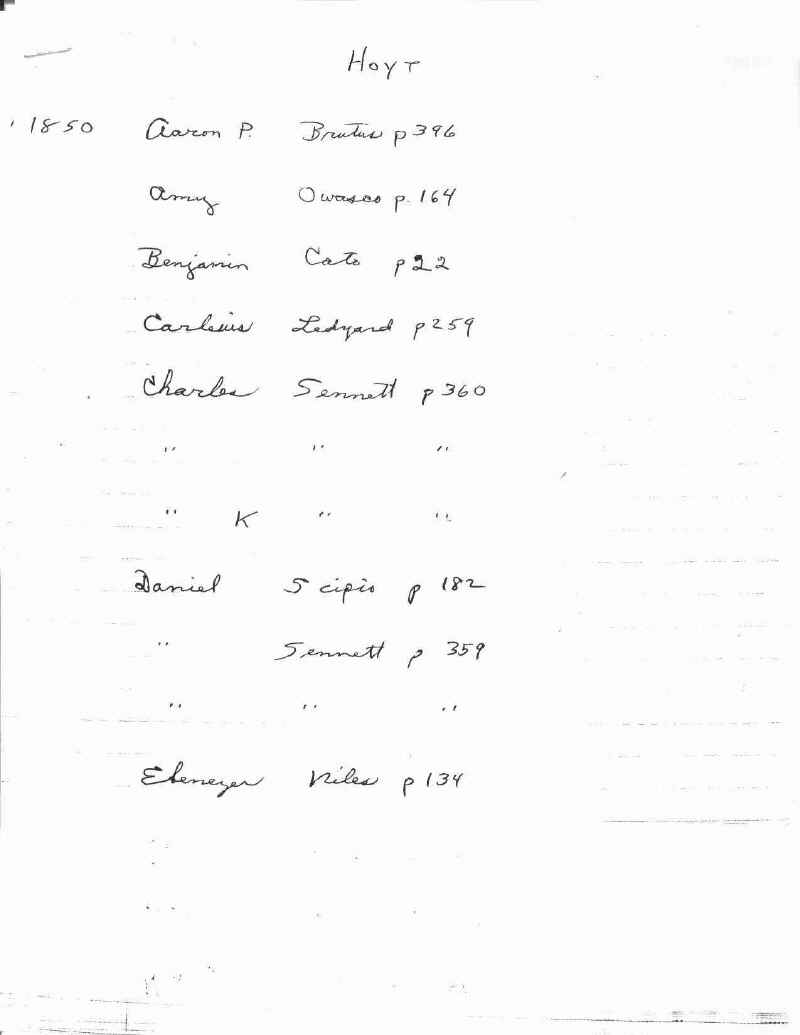 Hoyt
1850 Aaron P. Brutus p 396
Amy Owasco p. 164
Benjamin Cato p 22
Ledyard p 259
Charles Sennett p 360
" " "
" K " "
Daniel Scipio p 182
" Sennett p 359
" " "
Ebenezer Niles p 134